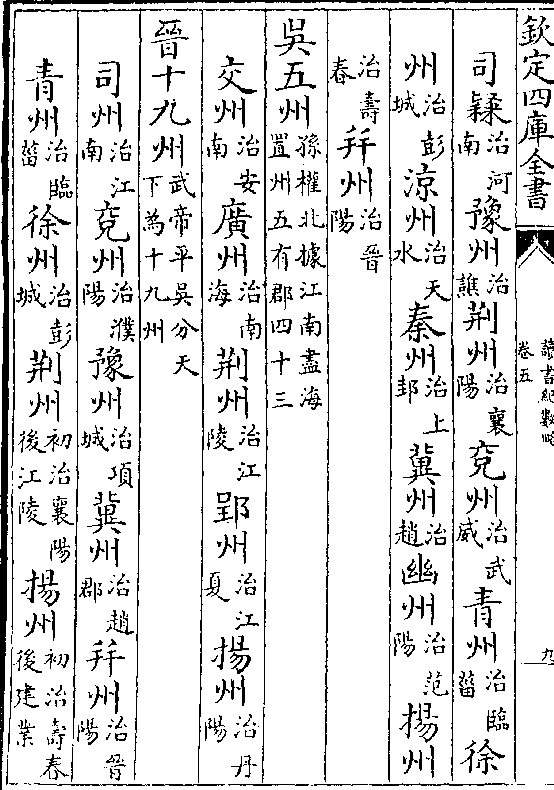 欽定四庫全書
讀書紀數略
卷五
九
司隸治河南豫州治譙荆州治襄陽兗州治武威青州治臨菑徐
州治彭城涼州治天水秦州治上邽冀州治趙幽州治范陽揚州
治壽春并州治晉陽
吳五州孫權北據江南盡海置州五有郡四十三
交州治安南廣州治南海荆州治江陵郢州治江夏揚州治丹陽
晉十九州武帝平吳分天下為十九州
司州治江南兗州治濮陽豫州治項城冀州治趙郡并州治晉陽
青州治臨菑徐州治彭城荆州初治襄陽後江陵揚州初治壽春後建業